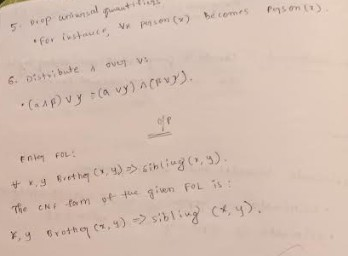 5. Drop universal quantifiers
• For instance, ∀x person(x) becomes Person(x).
6. Distribute ∧ over ∨s
• (α ∧ β) ∨ γ = (α ∨ γ) ∧ (β ∨ γ).
O/P
Enter FOL:
∀ x,y Brother(x,y) => sibling(x,y).
The CNF form of the given FOL is:
x,y Brother(x,y) => sibling(x,y).